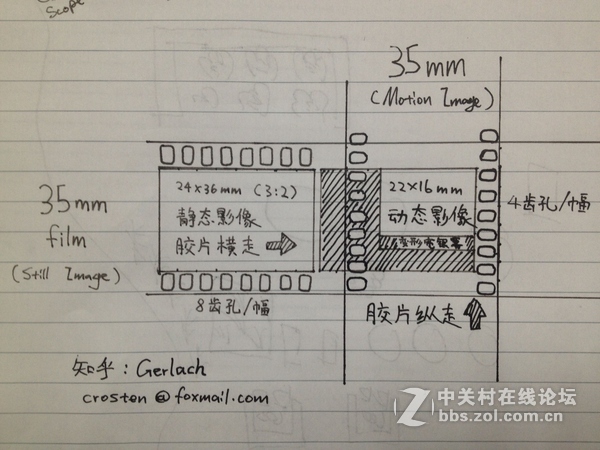 Scope
35mm
(Motion Image)
35mm
film
(Still Image)
24×36mm (3:2)
静态影像
胶片横走
22×16mm
动态影像
变形宽银幕
4齿孔/幅
8齿孔/幅
胶片纵走
知乎:Gerlach
crosten@foxmail.com
中关村在线论坛
bbs.zol.com.cn